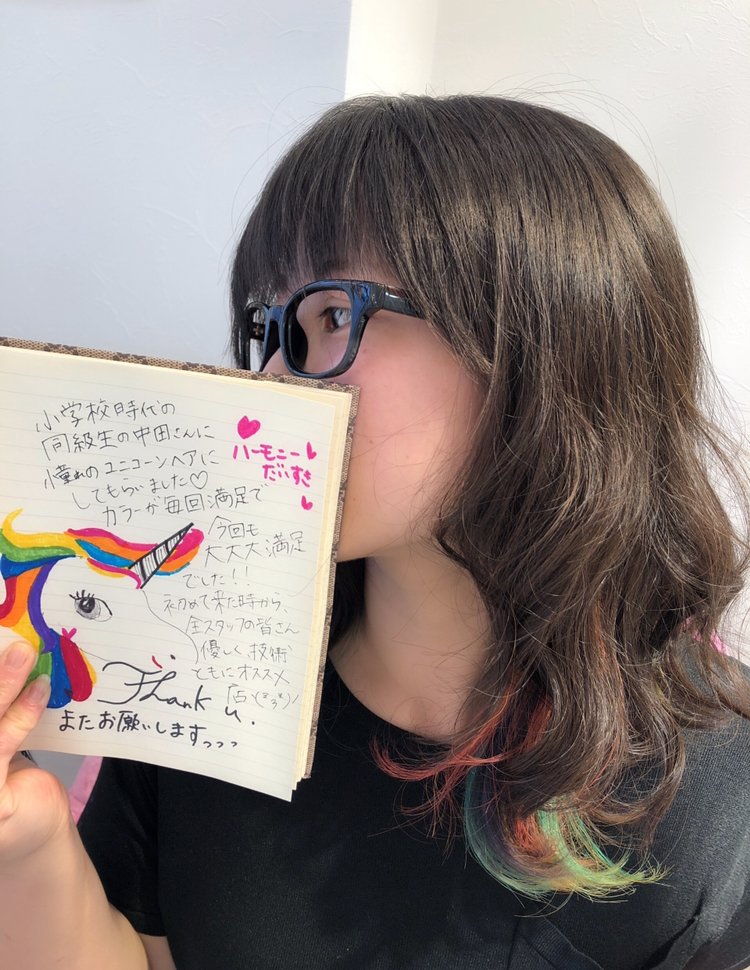 小学校時代の
同級生の中田さんに
憧れのユニコーンヘアに
してもらいました♡
カラーが毎回満足で
今回も
大大大満足
でした!!
初めて来た時から、
全スタッフの皆さん
優しく、技術
ともにオススメ
店ヽ(*³*)ノ
Thank u.
またお願いしますっっっ
ハーモニー
だいすき